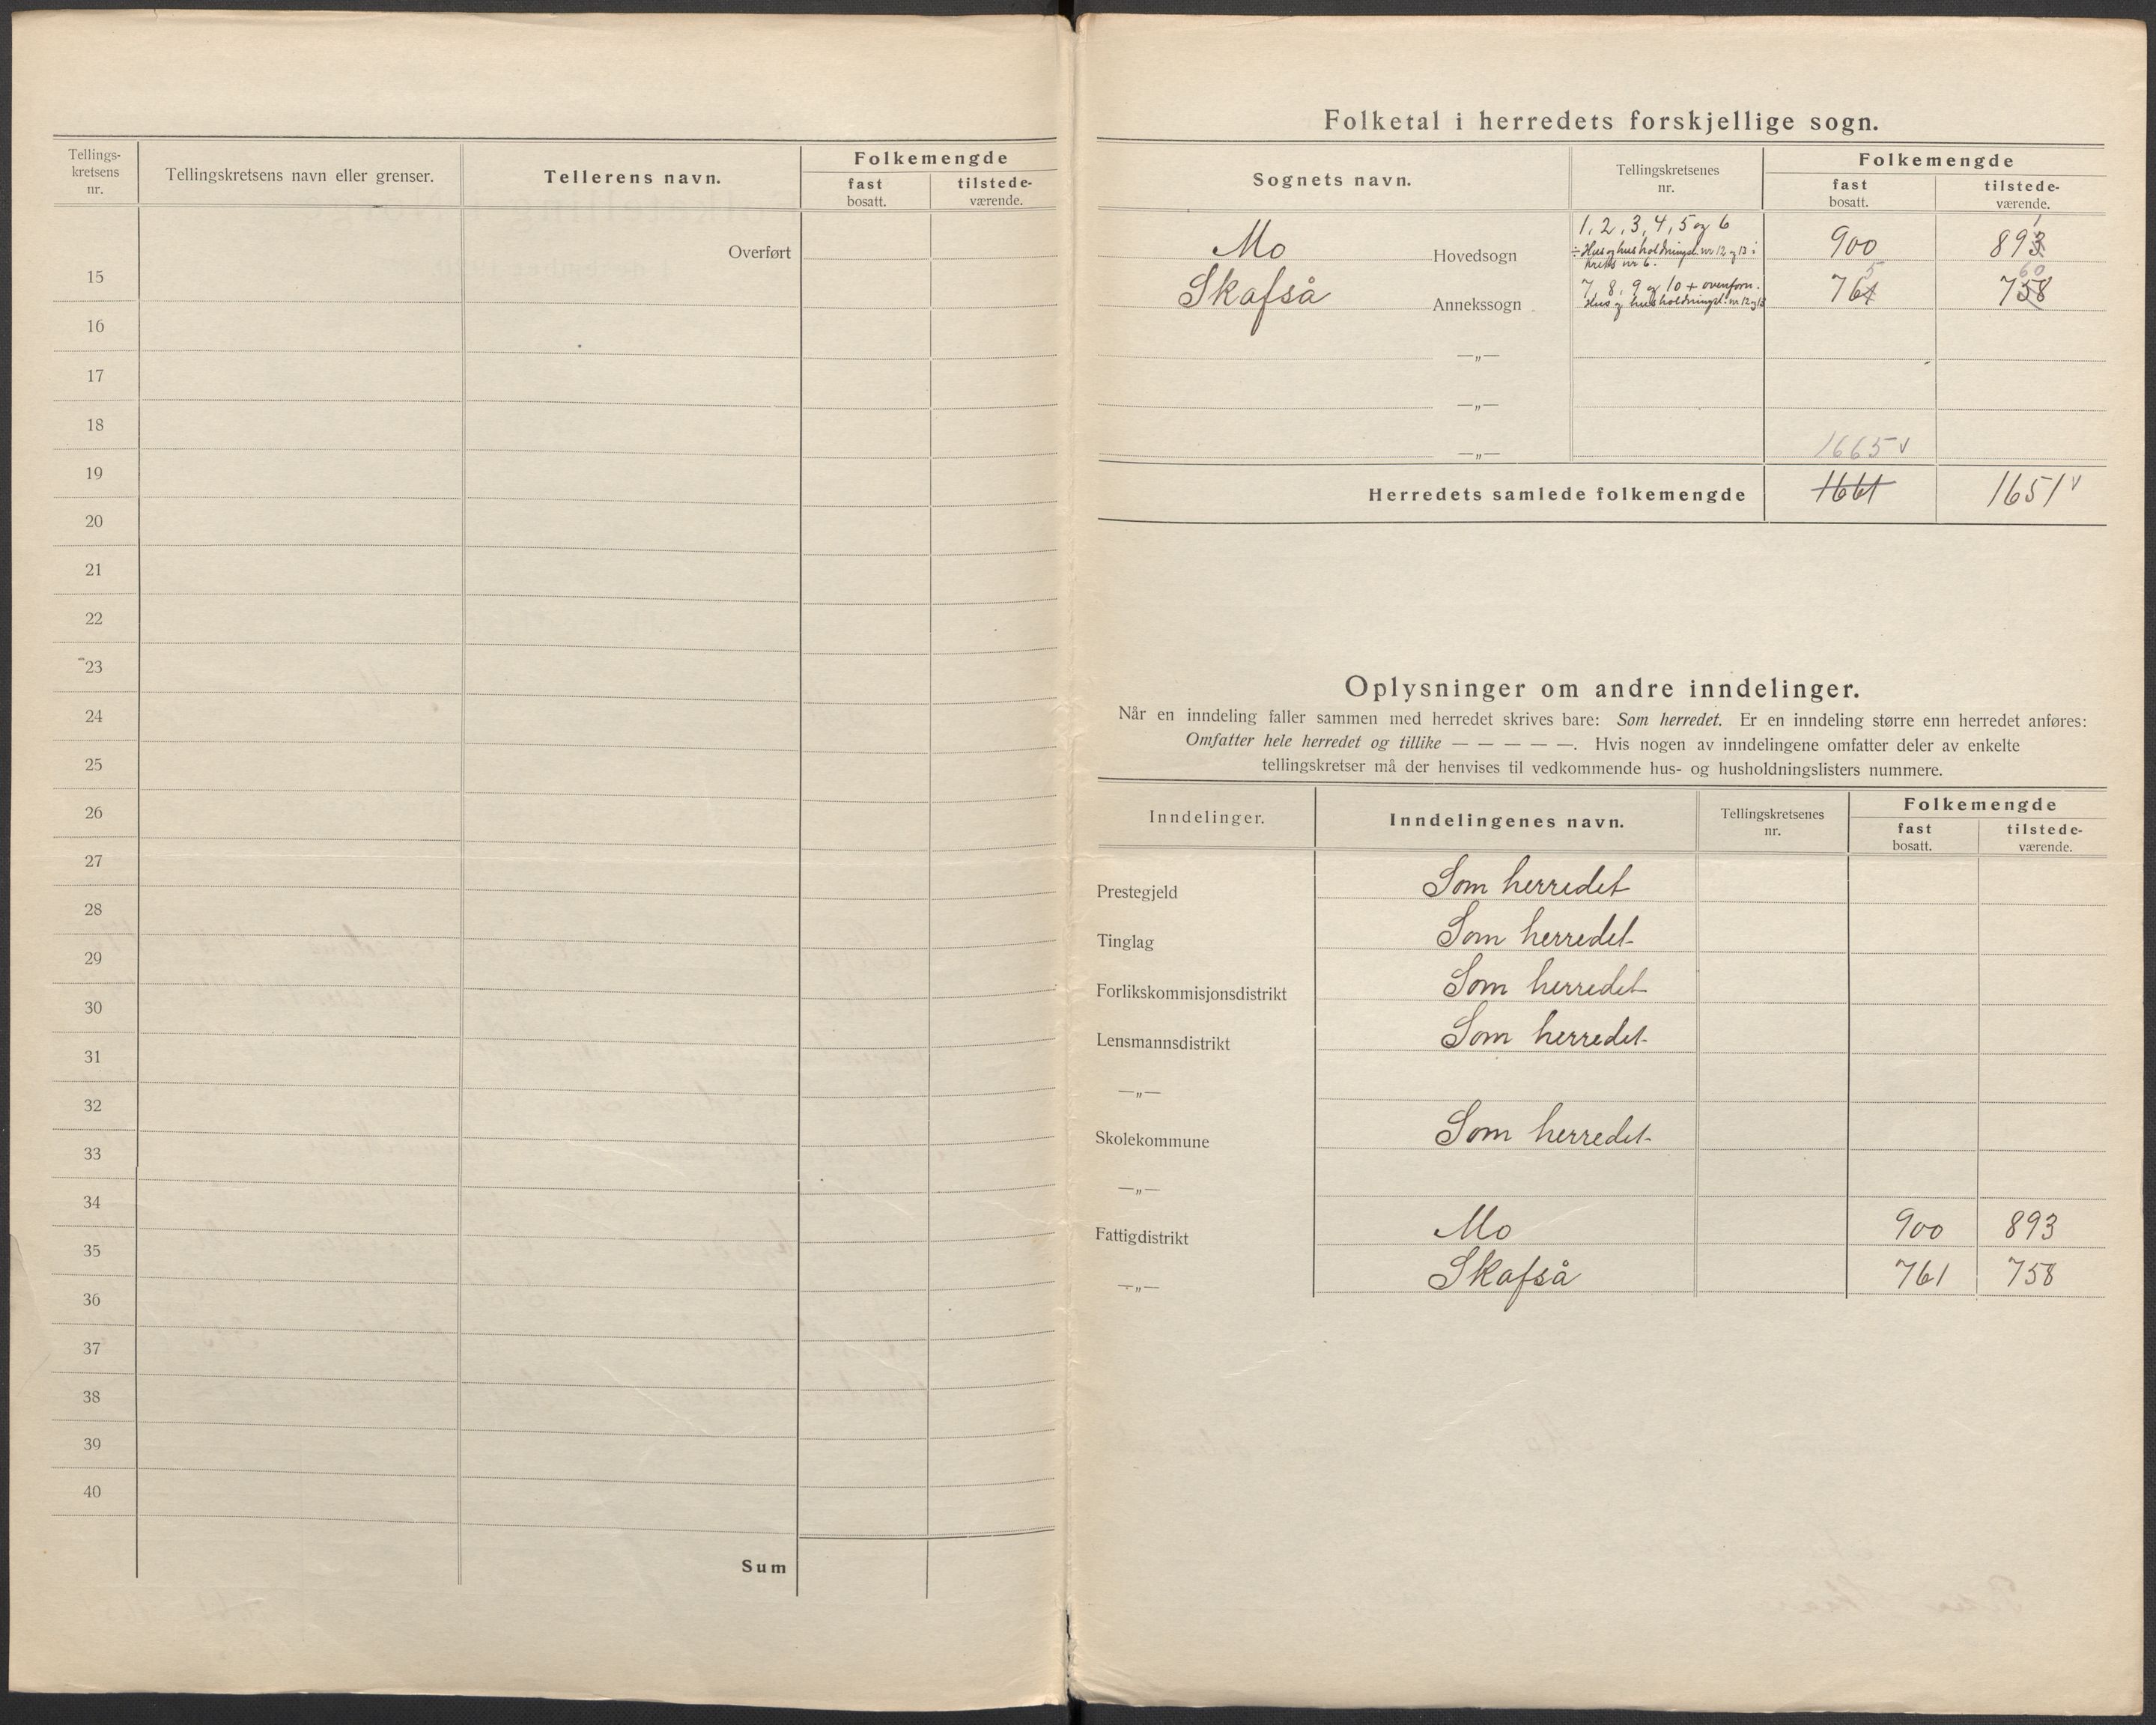 Tellings-
kretsens
nr.
Tellingskretsens navn eller grenser.
Tellerens navn.
Folkemengde
fast
bosatt.
tilstede-
værende.
Overført
15
16
17
18
19
20
21
22
23
24
25
26
27
28
29
30
31
32
33
34
35
36
37
38
39
40
Sum
Folketal i herredets forskjellige sogn.
Sognets navn.
Tellingskretsenes
nr.
Folkemengde
fast
bosatt.
tilstede-
værende.
Mo Hovedsogn 1, 2, 3, 4, 5 og 6 900 893 1
÷ Hus og husholdningsl. nr 12 og 13 i
krets nr 6.
Skafså Annekssogn 7, 8, 9 og 10 + ovenforn. 761 5 758 60
Hus og husholdningsl. nr 12 og 13
—„—
—„—
—„—
1665 v
Herredets samlede folkemengde 1661 1651 v
Oplysninger om andre inndelinger.
Når en inndeling faller sammen med herredet skrives bare: Som herredet. Er en inndeling større enn herredet anføres:
Omfatter hele herredet og tillike — — — — —. Hvis nogen av inndelingene omfatter deler av enkelte
tellingskretser må der henvises til vedkommende hus- og husholdningslisters nummere.
Inndelinger.
Inndelingenes navn.
Tellingskretsenes
nr.
Folkemengde
fast
bosatt.
tilstede-
værende.
Prestegjeld Som herredet
Tinglag Som herredet
Forlikskommisjonsdistrikt Som herredet
Lensmannsdistrikt Som herredet
—„—
Skolekommune Som herredet
—„—
Fattigdistrikt Mo 900 893
—„— Skafså 761 758